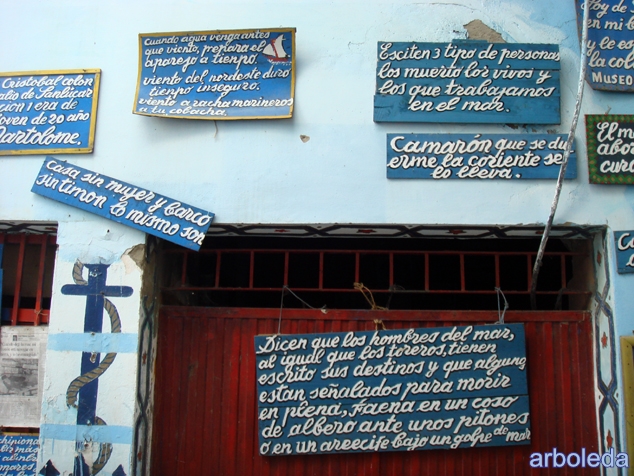 Cristobal colon
Sanlucar
cion i era de
oven de 20 año
artolome.
Cuando agua venga antes
que viento, prepara el
aparejo a tiempo.
viento del nordeste duro
tienpo inseguro. y
viento a racha marineros
a tu cobacha.
Esciten 3 tipo de personas
los muerto los vivos y
los que trabajamos
en el mar.
en mi
y le es
la col
Museo
Camarón que se du
erme la coriente se
lo lleva.
El m
abo
cur
Casa sin mujer y barco
sin timon lo mismo son
Dicen que los hombres del mar,
al igual que los toreros, tienen
escrito sus destinos y que alguno
estan señalados para morir
en plena, Faena en un coso
de albero ante unos pitones
o en un arecife bajo un golpe de mar
arboleda